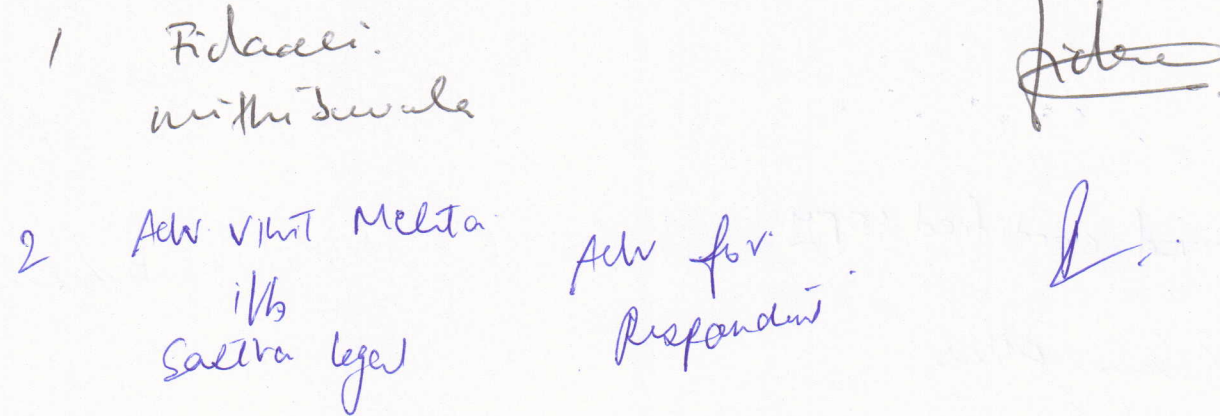 1 Fidaali.
mithiborwala
2 Adv Vihit Mehta
i/b
Sastra legal
Adv for
Respondent.